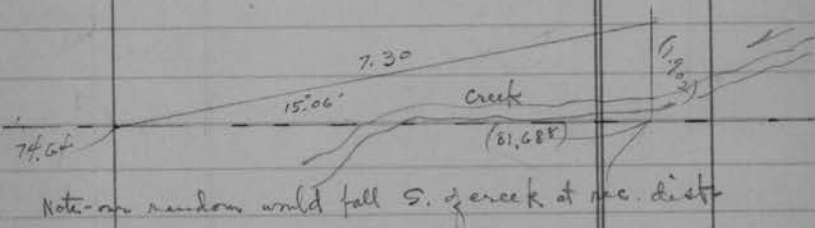 7.30
15°06'
Creek
(81,688)
74.64
Note - our random would fall S. of creek at rec. dist.